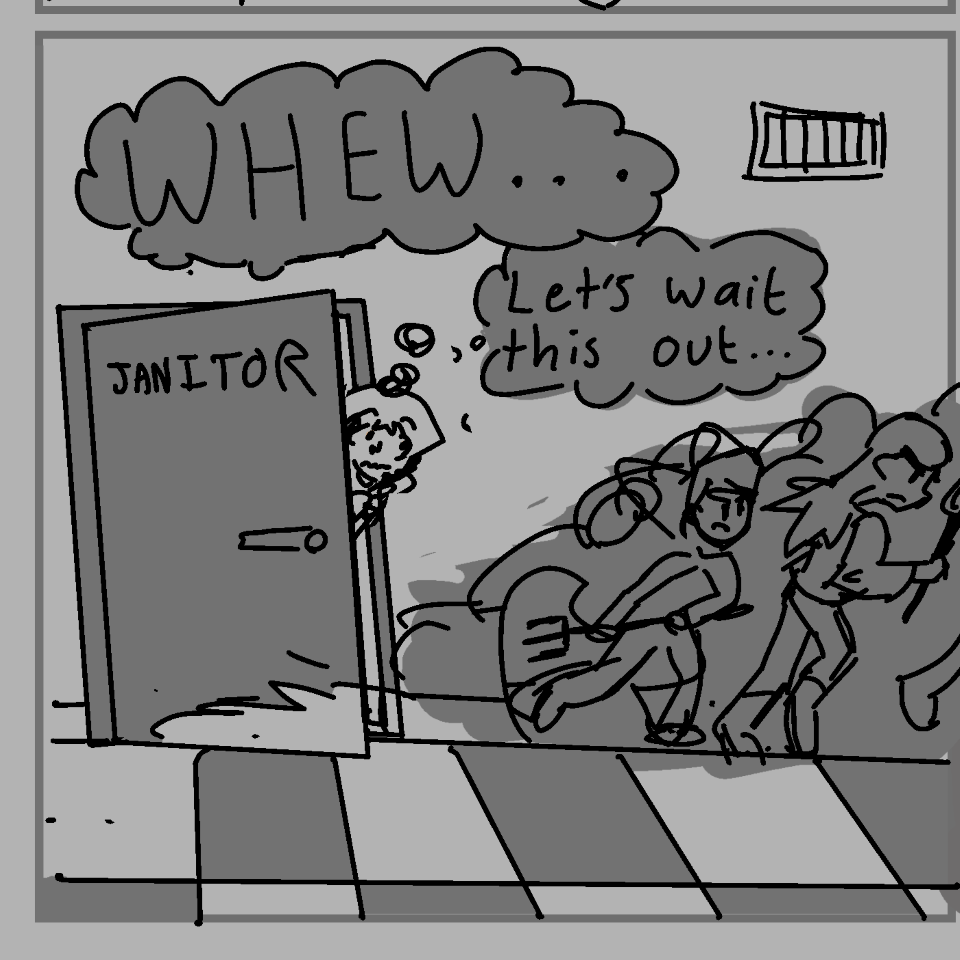 WHEW...
Let's wait
this out...
JANITOR